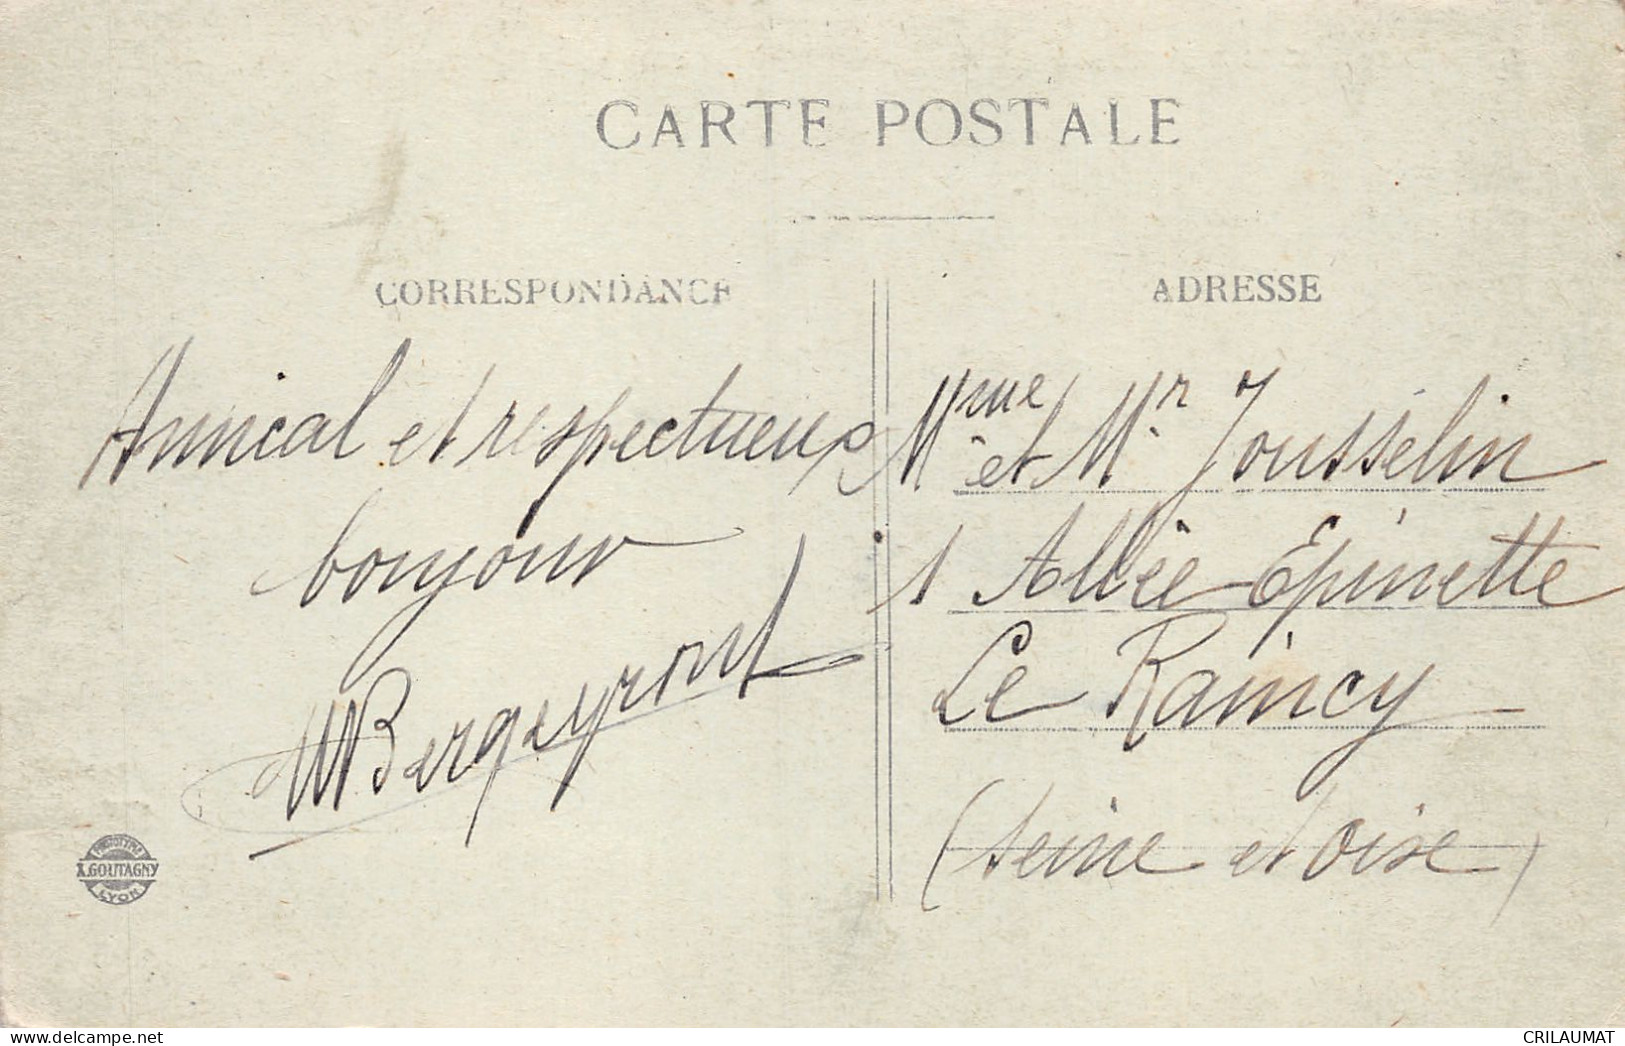 CARTE POSTALE
CORRESPONDANCE
ADRESSE
Amical et respectueux
bonjour
MBergeyront
Mme et Mr Jousselin
1 Allée Epinette
Le Raincy
(Seine et Oise)
PHOTOTYPIE
A.GOUTAGNY
LYON
www.delcampe.net
CRILAUMAT